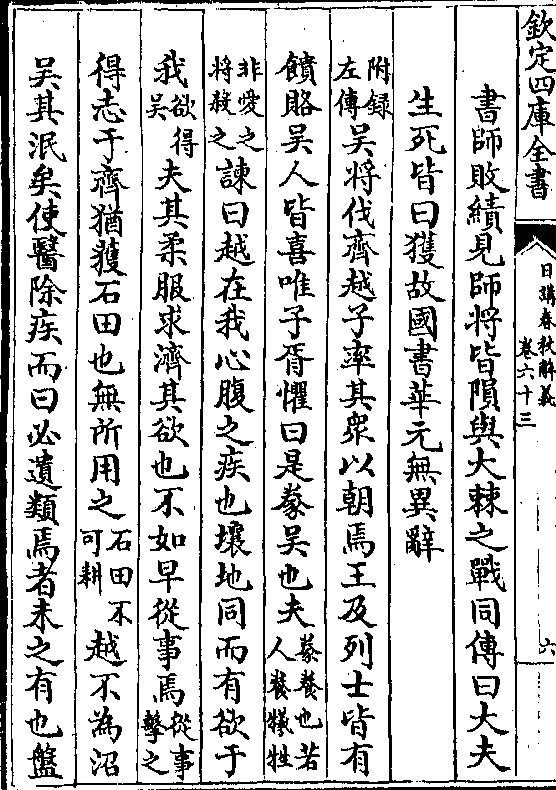 欽定四庫全書
日講春秋解義
卷六十三
六
書師敗績見師將皆隕與大棘之戰同傳曰大夫
生死皆曰獲故國書華元無異辭
附録左傳吳將伐齊越子率其衆以朝焉王及列士皆有
饋賂吳人皆喜唯子胥懼曰是豢吳也夫豢養也若人養犧牲
非愛之將殺之諫曰越在我心腹之疾也壤地同而有欲于
我欲得吳夫其柔服求濟其欲也不如早從事焉從事擊之
得志于齊猶獲石田也無所用之石田不可耕越不為沼
吳其泯矣使醫除疾而曰必遺類焉者未之有也盤